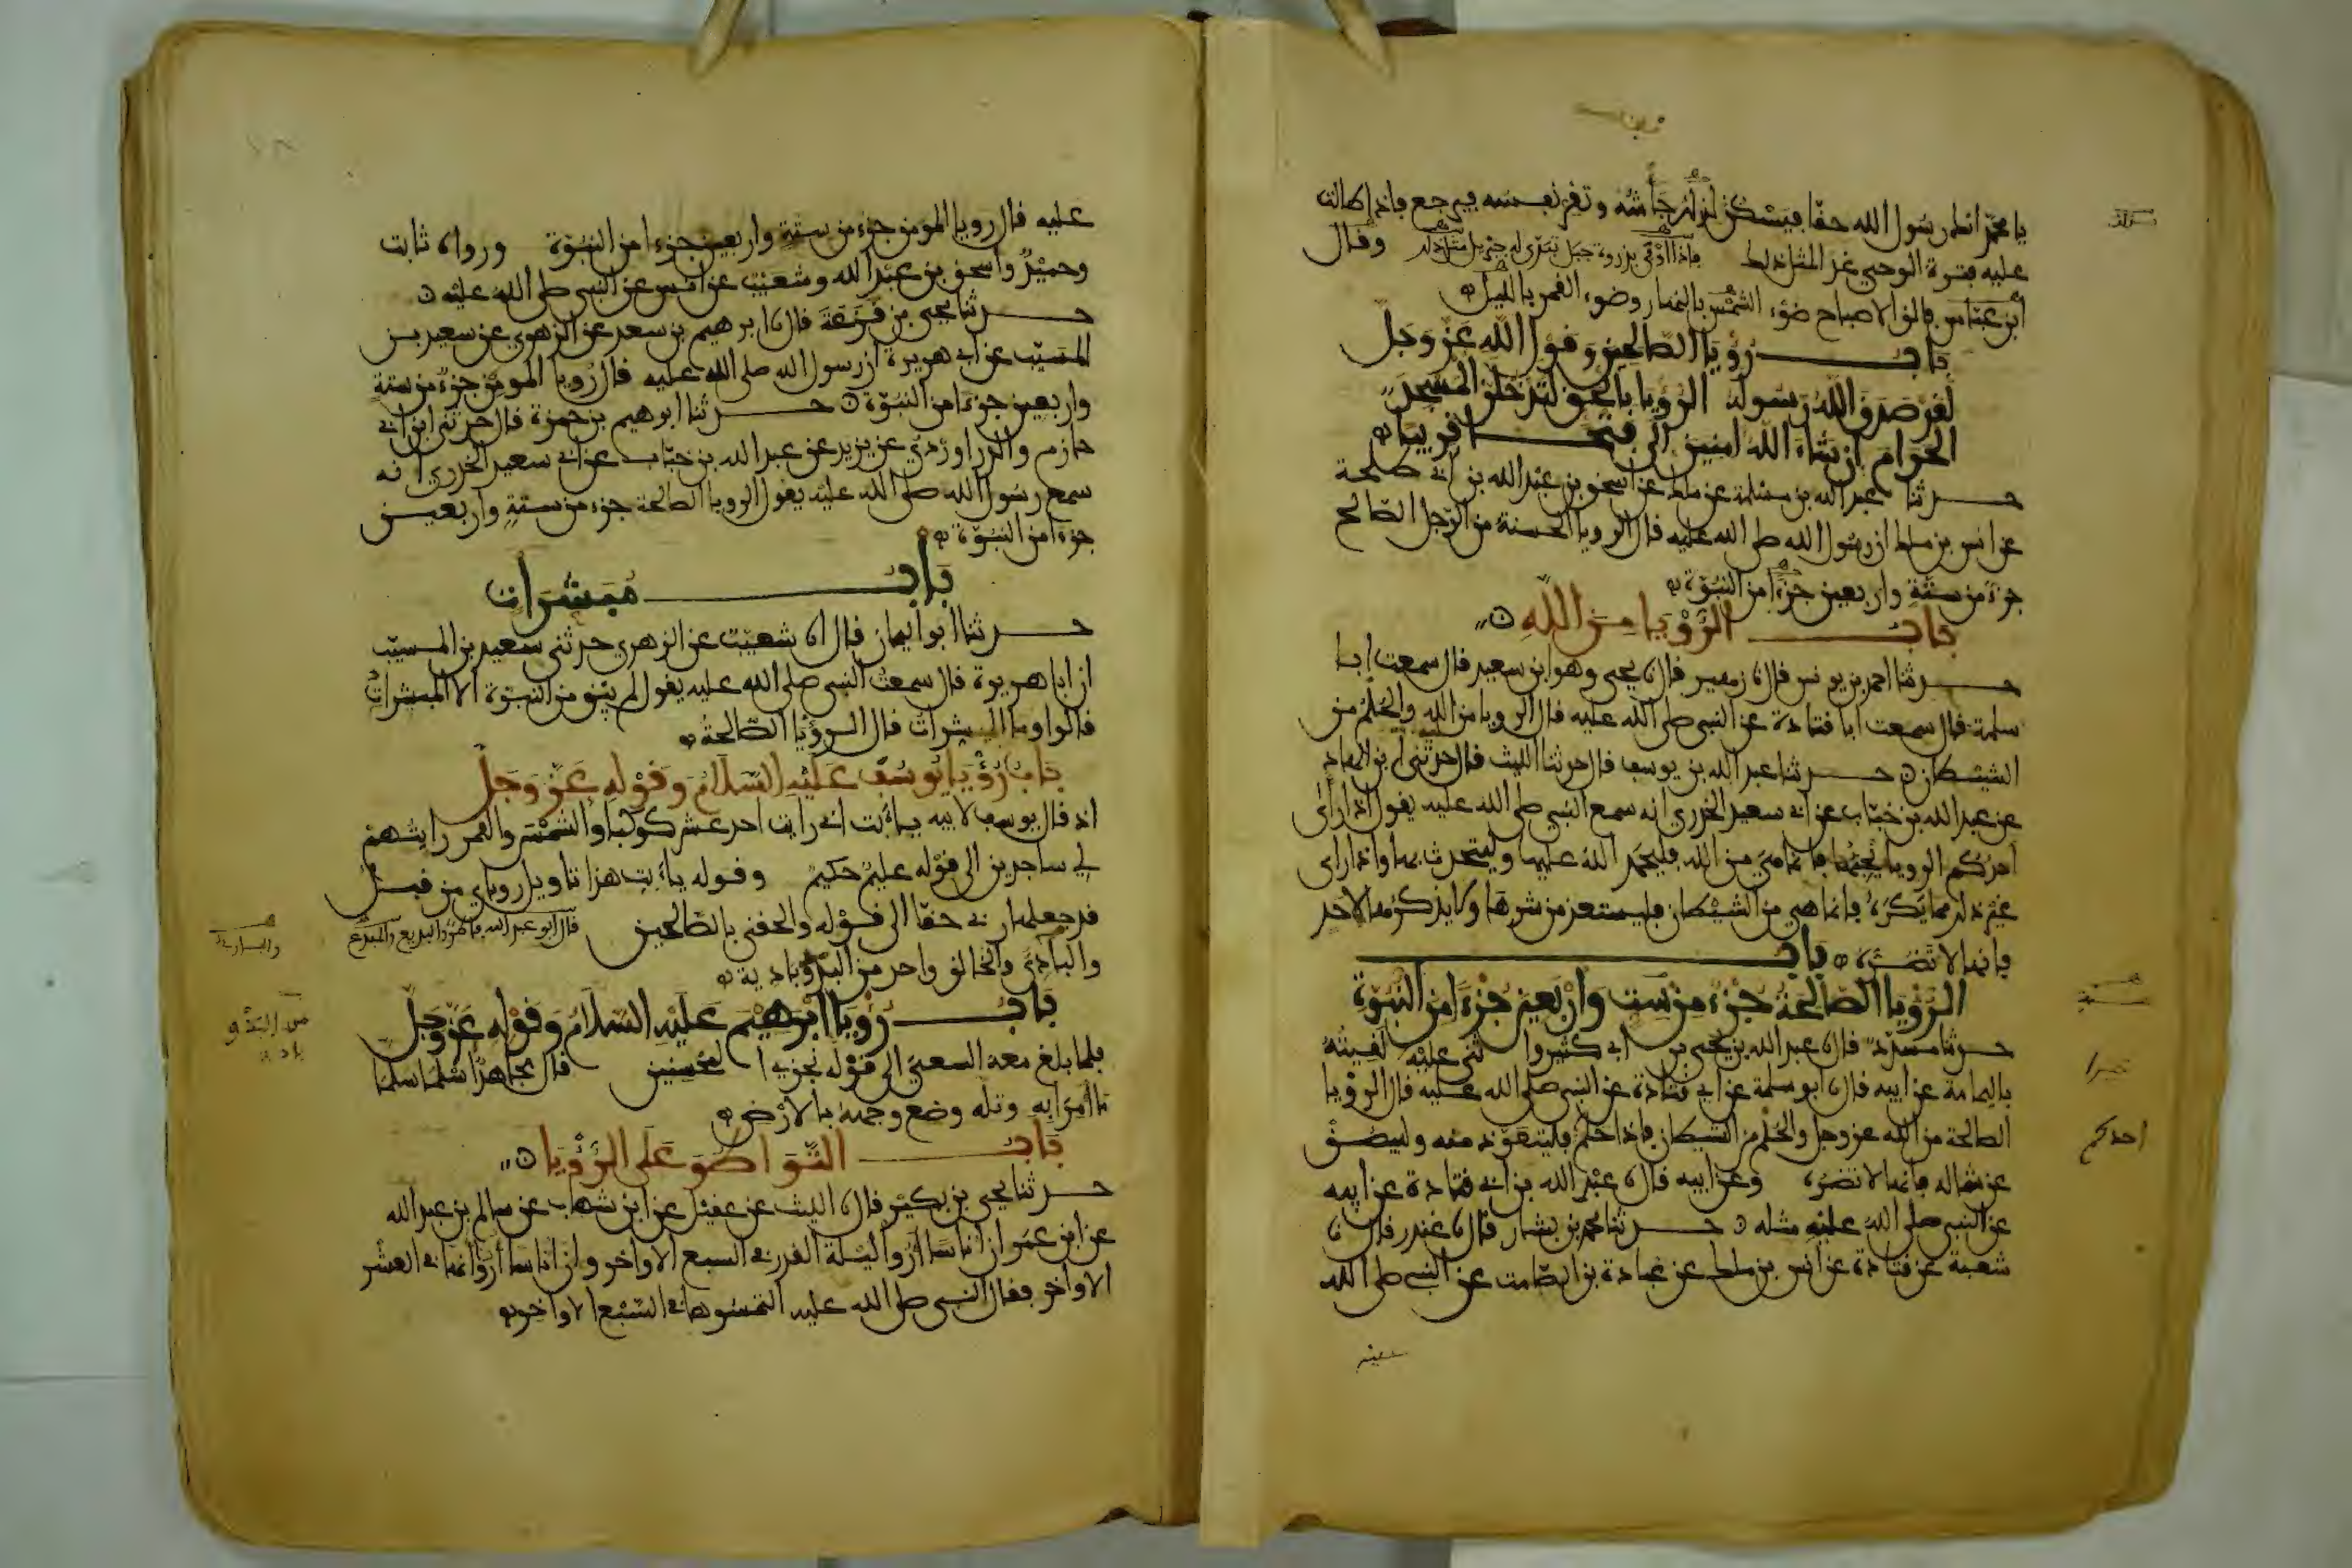 يا محمد انك رسول الله حقا فيسكن لذلك جأشه وتقر نفسه فيرجع فاذا طالت
عليه فترة الوحي غدا لمثل ذلك فاذا اوفى بذروة جبل تبدى له جبريل مثل ذلك وقال
ابن عباس فالق الاصباح ضوء الشمس بالنهار وضوء القمر بالليل
باب رؤيا الصالحين وقول الله عز وجل
لقد صدق الله رسوله الرؤيا بالحق لتدخلن المسجد
الحرام ان شاء الله امنين الى فتحا قريبا
حدثنا عبد الله بن مسلمة عن ملك عن اسحق بن عبد الله بن ابي طلحة
عن انس بن ملك ان رسول الله صلى الله عليه قال الرويا الحسنة من الرجل الصالح
جزء من ستة واربعين جزءا من النبوة
باب الرؤيا من الله
حدثنا احمد بن يونس قال نا زهير قال نا يحيى وهو ابن سعيد قال سمعت ابا
سلمة قال سمعت ابا قتادة عن النبي صلى الله عليه قال الرويا من الله والحلم من
الشيطان حدثنا عبد الله بن يوسف قال حدثنا الليث قال حدثني ابن الهاد
عن عبد الله بن خباب عن ابي سعيد الخدري انه سمع النبي صلى الله عليه يقول اذا راى
احدكم الرويا يحبها فانما هي من الله فليحمد الله عليها وليتحدث بها واذا راى
غير ذلك مما يكره فانما هي من الشيطان فليستعذ من شرها ولا يذكرها لاحد
فانها لا تضره باب
الرؤيا الصالحة جزء من ست واربعين جزءا من النبوة
حدثنا مسدد قال نا عبد الله بن يحيى بن ابي كثير واثنى عليه لقيته
باليمامة عن ابيه قال نا ابو سلمة عن ابي قتادة عن النبي صلى الله عليه قال الرؤيا
الصالحة من الله عز وجل والحلم من الشيطان فاذا حلم فليتعوذ منه وليبصق
عن شماله فانها لا تضره وعن ابيه قال نا عبد الله بن ابي قتادة عن ابيه
عن النبي صلى الله عليه مثله حدثنا محمد بن بشار قال نا غندر قال نا
شعبة عن قتادة عن انس بن ملك عن عبادة بن الصامت عن النبي صلى الله
احدكم
عليه قال رويا المومن جزء من ستة واربعين جزءا من النبوة ورواه ثابت
وحميد واسحق بن عبد الله وشعيب عن انس عن النبي صلى الله عليه
حدثنا يحيى بن قزعة قال نا ابرهيم بن سعد عن الزهري عن سعيد بن
المسيب عن ابي هريرة ان رسول الله صلى الله عليه قال رويا المومن جزء من ستة
واربعين جزءا من النبوة حدثنا ابرهيم بن حمزة قال حدثني ابن ابي
حازم والدراوردي عن يزيد عن عبد الله بن خباب عن ابي سعيد الخدري انه
سمع رسول الله صلى الله عليه يقول الرويا الصالحة جزء من ستة واربعين
جزءا من النبوة
باب مبشرات
حدثنا ابو اليمان قال انا شعيب عن الزهري حدثني سعيد بن المسيب
ان ابا هريرة قال سمعت النبي صلى الله عليه يقول لم يبق من النبوة الا المبشرات
قالوا وما المبشرات قال الرؤيا الصالحة
باب رؤيا يوسف عليه السلام وقوله عز وجل
اذ قال يوسف لابيه يا ابت اني رايت احد عشر كوكبا والشمس والقمر رايتهم
لي ساجدين الى قوله عليم حكيم وقوله يا ابت هذا تاويل روياي من قبل
قد جعلها ربي حقا الى قوله والحقني بالصالحين قال ابو عبد الله فاطر والبديع والمبدع
والبادئ والخالق واحد من البدو بادية
باب رؤيا ابرهيم عليه السلام وقوله عز وجل
فلما بلغ معه السعي الى قوله نجزي المحسنين قال مجاهد اسلما سلما
ما امرا به وتله وضع وجهه بالارض
باب التواطؤ على الرؤيا
حدثنا يحيى بن بكير قال نا الليث عن عقيل عن ابن شهاب عن سالم بن عبد الله
عن ابن عمر ان اناسا اروا ليلة القدر في السبع الاواخر وان اناسا اروا انها في العشر
الاواخر فقال النبي صلى الله عليه التمسوها في السبع الاواخر
من البدو
بادية